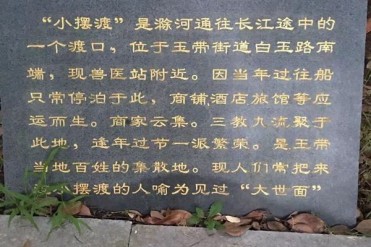 “小摆渡”是滁河通往长江途中的
一个渡口，位于玉带街道白玉路南
端，现兽医站附近。因当年过往船
只常停泊于此，商铺酒店旅馆等应
运而生。商家云集。三教九流聚于
此地，逢年过节一派繁荣。是玉带
当地百姓的集散地。现人们常把来
过小摆渡的人喻为见过“大世面”